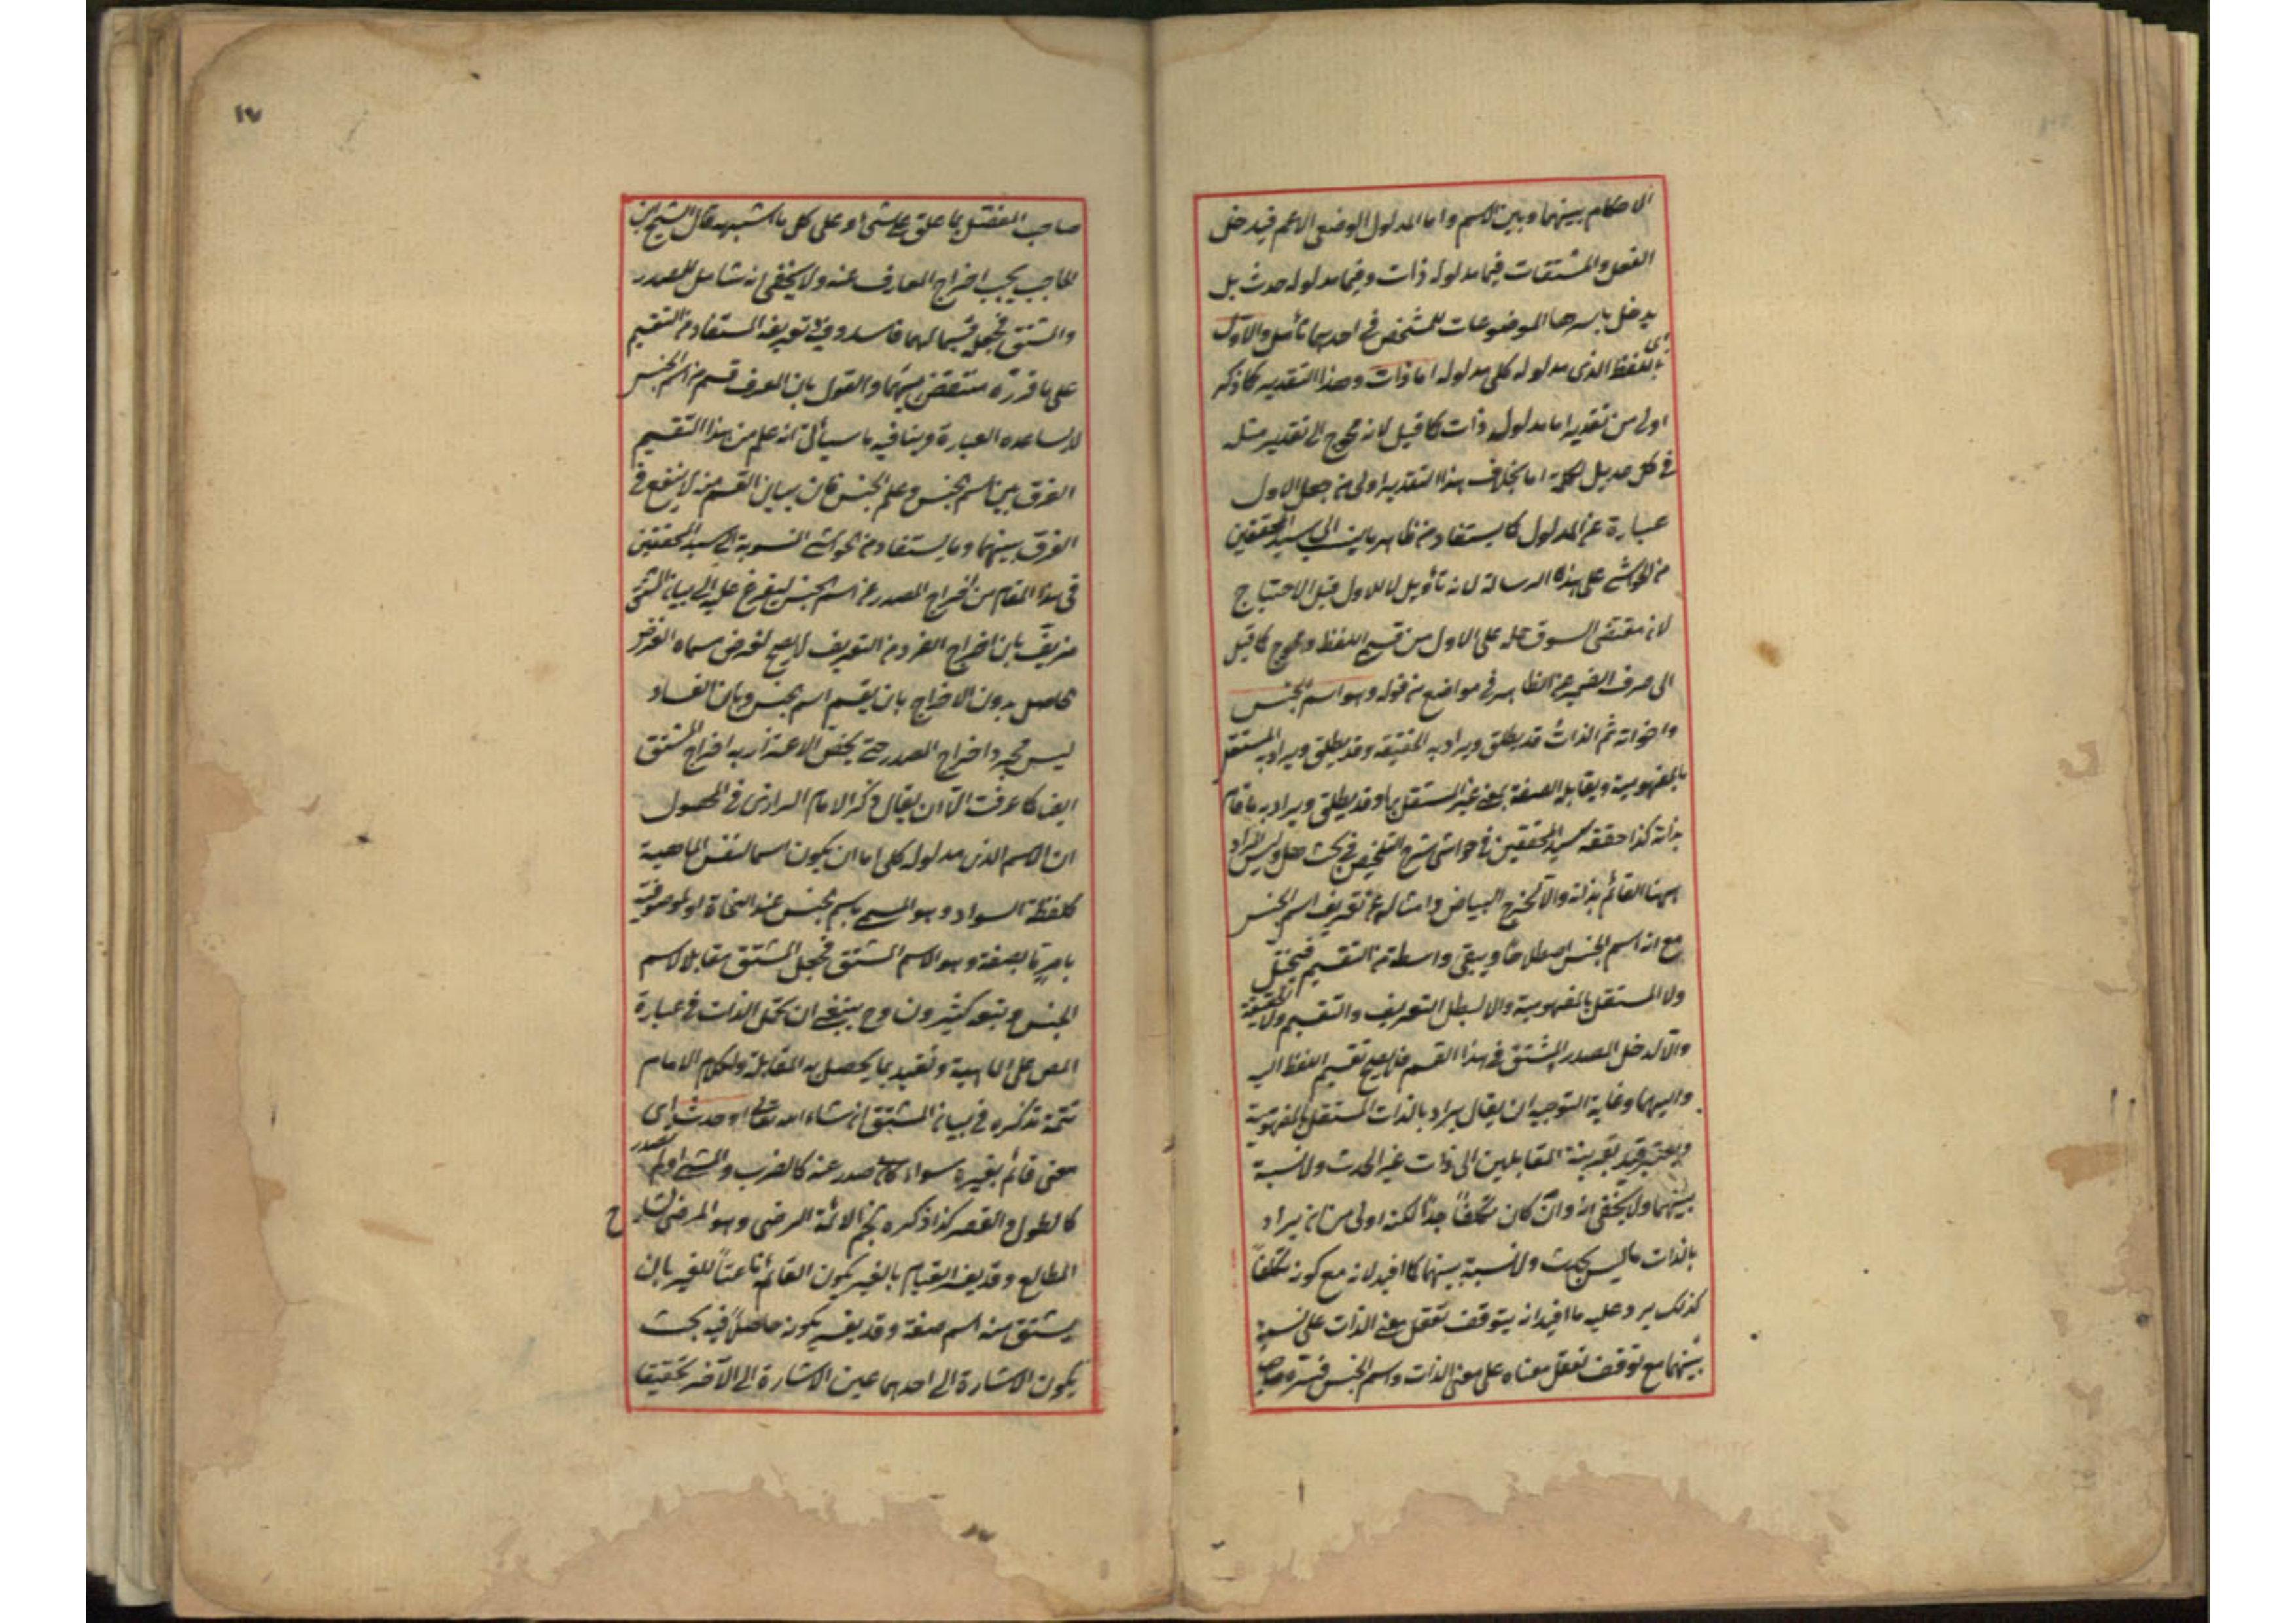 الاحكام بينهما وبين الاسم واما المدلول الوضعى الاعم فيدخل
الفعل والمشتقات فيما مدلوله ذات وفيما مدلوله حدث بل
يدخل باسرها الموضوعات للمشخص فى احدهما تأمل والاول
اى اللفظ الذى مدلوله كلى مدلوله اما ذات وهذا التقدير كما ذكر
اولى من تقدير اما مدلوله ذات كما قيل لانه محوج الى تقدير مثله
فى كل عديل لكلمة اما بخلاف هذا التقدير اولى من جعل الاول
عبارة عن المدلول كما يستفاد من ظاهر ما ينسب الى سيد المحققين
من الحواشى على هذه الرسالة لانه تأويل للاول قبل الاحتياج
لان مقتضى السوق حمله على الاول من قسمى اللفظ ومحوج كما قيل
الى صرف الضمير عن الظاهر فى مواضع من قوله وهو اسم الجنس
واخواته ثم الذات قد يطلق ويراد به الحقيقة وقد يطلق ويراد به المستقل
بالمفهومية ويقابله الصفة بمعنى غير المستقل بها وقد يطلق ويراد به ما قام
بذاته كذا حققه سيد المحققين فى حواشى شرح التلخيص فى بحث هل وليس المراد
ههنا القائم بذاته والا لخرج البياض وامثاله عن تعريف اسم الجنس
مع انه اسم الجنس اصطلاحا ويبقى واسطة من التقسيم فيختل
ولا المستقل بالمفهومية والا لبطل التعريف والتقسيم ولا الحقيقة
والا لدخل المصدر والمشتق فى هذا القسم فلا يصح تقسيم اللفظ اليه
واليهما وغاية التوجيه ان يقال يراد بالذات المستقل بالمفهومية
ويعتبر قيد بقرينة المقابلين اى ذات غير الحدث ولا نسبة
بينهما ولا يخفى انه وان كان تكلفا جدا لكنه اولى من ان يراد
بالذات ما ليس بحدث ولا نسبة بينهما كما افيد لانه مع كونه تكلفا
كذلك يرد عليه ما افيد انه يتوقف تعقل معنى الذات على نسبة
بينهما مع توقف تعقل معناه على معنى الذات واسم الجنس فسره صاحب
١٧
صاحب المفصل بما علق على شئ وعلى كل ما اشبهه قال الشيخ ابن
الحاجب يجب اخراج المعارف عنه ولا يخفى انه شامل للمصدر
والمشتق فجعله قسيما لهما فاسد وفى تعريفه المستفاد من التقسيم
على ما قرره منتقض بهما والقول بان المعرف قسم من اسم الجنس
لا يساعده العبارة وينافيه ما سيأتى انه علم من هذا التقسيم
الفرق بين اسم الجنس وعلم الجنس فان بيان القسم منه لا ينفع فى
الفرق بينهما وما يستفاد من الحواشى المنسوبة الى سيد المحققين
فى هذا المقام من اخراج المصدر عن اسم الجنس ليتفرع عليه الى بيان المشتق
مزيف بان اخراج الفرد من التعريف لا يصح لغرض سماه الغرض
حاصل بدون الاخراج بان يقسم اسم الجنس وبان الفساد
ليس مجرد اخراج المصدر حتى يخص الاعتذار به اخراج المشتق
ايضا كما عرفت الا ان يقال ذكر الامام الرازى فى المحصول
ان الاسم الذى مدلوله كلى اما ان يكون اسما لنفس الماهية
كلفظ السواد وهو المسمى باسم الجنس عند النحاة او لموصوفية
بامر ما بصفة وهو الاسم المشتق فجعل المشتق مقابلا لاسم
الجنس وتبعه كثيرون وح ينبغى ان تحمل الذات فى عبارة
المص على الماهية وتقيد بما يحصل به المقابلة ولكلام الامام
تتمة نذكره فى بيان المشتق ان شاء الله تعالى او حدث اى
معنى قائم بغيره سواء صدر عنه كالضرب والمشى او لم يصدر
كالطول والقصر كذا ذكره نجم الائمة الرضى وهو المرضى
المطالع وقد يفسر القيام بالغير بكون القائم ناعتا للغير بان
يشتق منه اسم صفة وقد يفسر بكونه حاصلا فيه بحيث
يكون الاشارة الى احدهما عين الاشارة الى الآخر تحقيقا